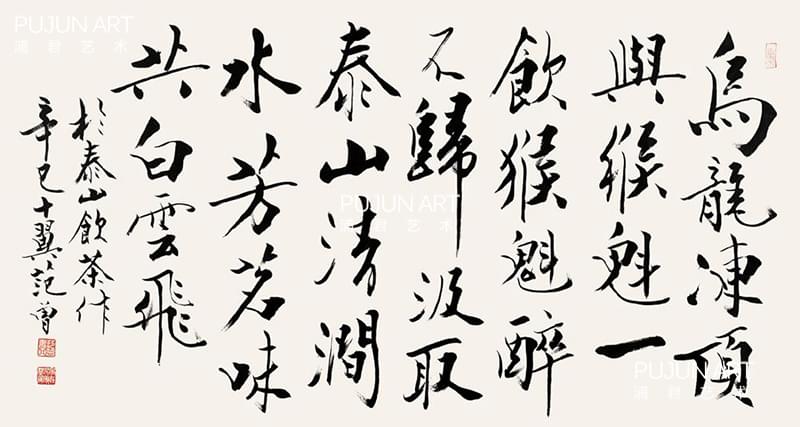 烏龍凍頂
與猴魁一
飲猴魁醉
不歸汲取
泰山清澗
水芳茗味
共白雲飛
於泰山飲茶作
辛巳十翼范曾
PUJUN ART
浦君艺术
PUJUN ART
浦君艺术
PUJUN ART
浦君艺术